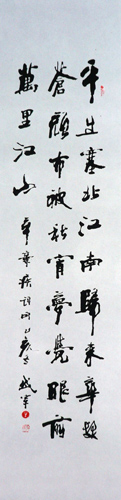 平生塞北江南歸來華髮
蒼顏布被秋宵夢覺眼前
萬里江山 辛棄疾詞